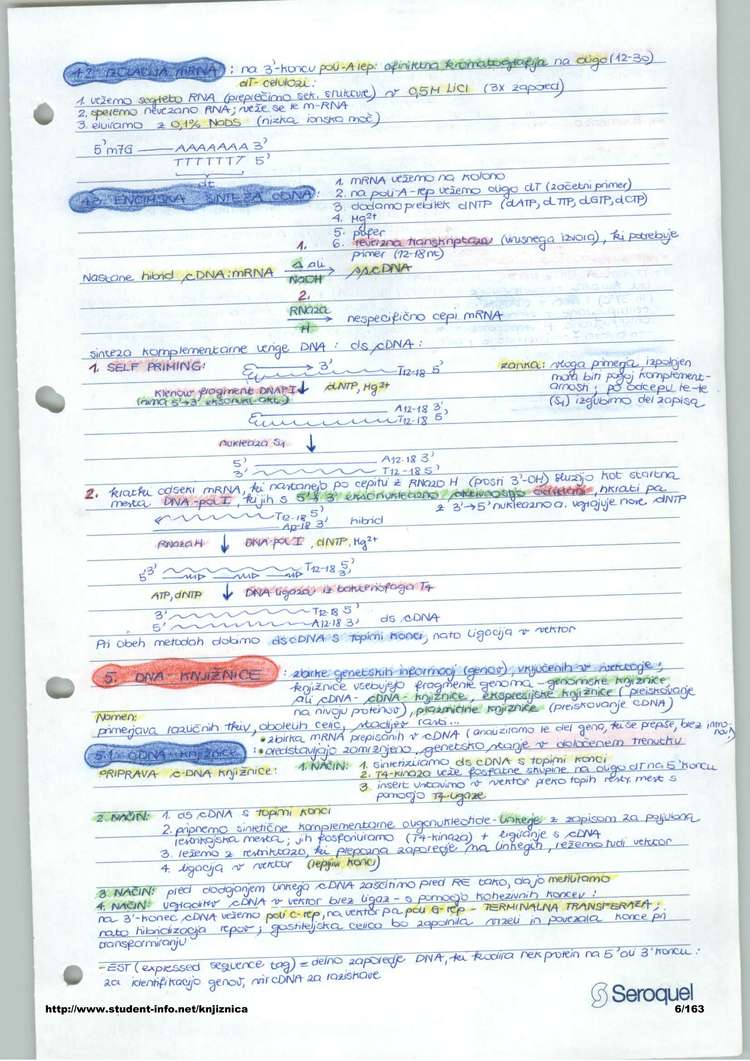 4.2. IZOLACIJA mRNA : na 3'-koncu poli-A rep: afinitetna kromatografija na oligo (12-30)
dT-celulozi:
1. vežemo segreto RNA (preprečimo sek. strukture) v 0,5M LiCl (3x zapored)
2. speremo nevezano RNA; veže se le m-RNA
3. eluiramo z 0,1% NaDS (nizka ionska moč)
5' m7G AAAAAAA 3'
TTTTTTT 5'
dt
4.3. ENCIMSKA SINTEZA cDNA:
1. mRNA vežemo na kolono
2. na poli-A-rep vežemo oligo dT (začetni primer)
3. dodamo prebitek dNTP (dATP, dTTP, dGTP, dCTP)
4. Mg2+
5. pufer
6. reverzna transkriptaza (virusnega izvora), ki potrebuje
primer (12-18nt)
Nastane hibrid cDNA:mRNA
1.
Δ ali
NaOH
sscDNA
2.
RNaza
H
nespecifično cepi mRNA
sinteza komplementarne verige DNA : ds cDNA :
1. SELF PRIMING:
3'
T12-18 5'
zanka: vloga primerja, izpolnjen
mora biti pogoj komplement-
arnosti; po odcepu le-te
(S1) izgubimo del zapisa
Klenow fragment DNAP I
dNTP, Mg2+
(nima 5'→3' eksonukl. akt.)
A12-18 3'
T12-18 5'
nukleaza S1
5' A12-18 3'
3' T12-18 5'
2. kratki odseki mRNA, ki nastanejo po cepitvi z RNazo H (prosti 3'-OH) služijo kot startna
mesta DNA-pol I, ki jih s 5'→3' eksonukleazno aktivnostjo odstrani, hkrati pa
z 3'→5' nukleazno a. vgrajuje nove dNTP
T12-18 5'
3' hibrid
RNaza H DNA-pol I, dNTP, Mg2+
3' T12-18 5'
5' 3'
ATP, dNTP DNA ligaza iz bakteriofaga T4
3' T12-18 5'
5' A12-18 3' ds cDNA
Pri obeh metodah dobimo dscDNA s topimi konci, nato ligacija v vektor
5. DNA-KNJIŽNICE : zbirke genetskih informacij (genov), vključenih v vektorje;
knjižnice vsebujejo fragmente genoma - genomske knjižnice
ali cDNA - cDNA-knjižnice, ekspresijske knjižnice (preiskovanje
na nivoju proteinov), plazmidne knjižnice (preiskovanje cDNA)
Namen:
primerjava različnih tkiv, obolelih celic, stadijev rasti...
5.1. cDNA-knjižnice :
• zbirka mRNA prepisanih v cDNA (analiziramo le del gena, ki se prepiše, brez intro-
nov)
• predstavljajo zamrznjeno genetsko stanje v določenem trenutku
PRIPRAVA c-DNA knjižnice:
1. NAČIN: 1. sintetiziramo ds cDNA s topimi konci
2. T4-kinaza veže fosfatne skupine na oligo dT na 5' koncu
3. insert vstavimo v vektor preko topih restr. mest s
pomočjo T4-ligaze
2. NAČIN: 1. ds cDNA s topimi konci
2. pripnemo sintetične komplementarne oligonukleotide-linkerje z zapisom za poljubna
restrikcijska mesta; jih fosforiliramo (T4-kinaza) + ligiranje s cDNA
3. režemo z restriktazo, ki prepozna zaporedje na linkerjih, režemo tudi vektor
4. ligacija v vektor (lepljivi konci)
3. NAČIN: pred dodajanjem linkerja cDNA zaščitimo pred RE tako, da jo metiliramo
4. NAČIN: vgraditev cDNA v vektor brez ligaz - s pomočjo kohezivnih koncev:
na 3'-konec cDNA vežemo poli C-rep, na vektor pa poli G-rep - TERMINALNA TRANSFERAZA;
nato hibridizacija repov; gostiteljska celica bo zapolnila vrzeli in povezala konce pri
transformiranju
-EST (expressed sequence tag) = delno zaporedje DNA, ki kodira nek protein na 5' ali 3' koncu:
za identifikacijo genov, vir cDNA za raziskave
Seroquel
http://www.student-info.net/knjiznica
6/163